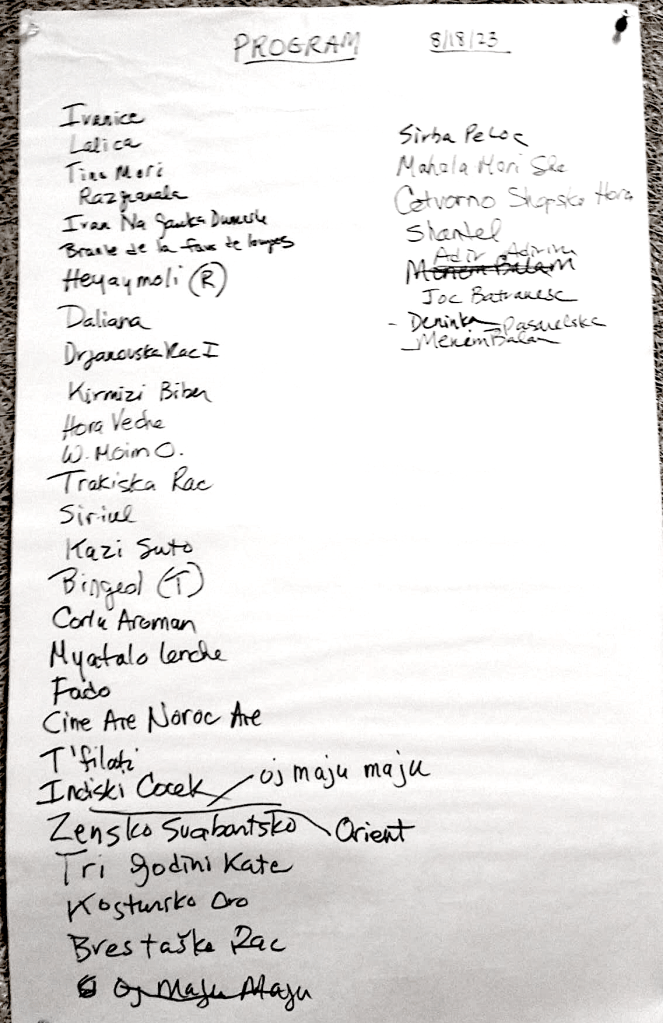 PROGRAM 8/18/23
Ivanice
Lalica
Tino Mori
Razguvala
Ivan Na
Branle de la
Heyaymoli (R)
Daliana
Drjanovska Rac I
Kirmizi Biber
Hora Veche
W. Moim O.
Trakiska Rac
Siriul
Kazi Suto
Bingeol (T)
Corlu Aroman
Myatalo Lenche
Fado
Cine Are Noroc Are
T'filati
Indiski Cocek oj maju maju
Zensko Svrbontsko Orient
Tri godini Kate
Kostursko Oro
Brestaške Rac
Oj Maju Maju
Sirba Pe Loc
Mahala Mori Ske
Cetvorno Shopsko Horo
Shantel
Adir Adirim
Menem Balam
Joc Batranesc
- Deninka
Menem Balam